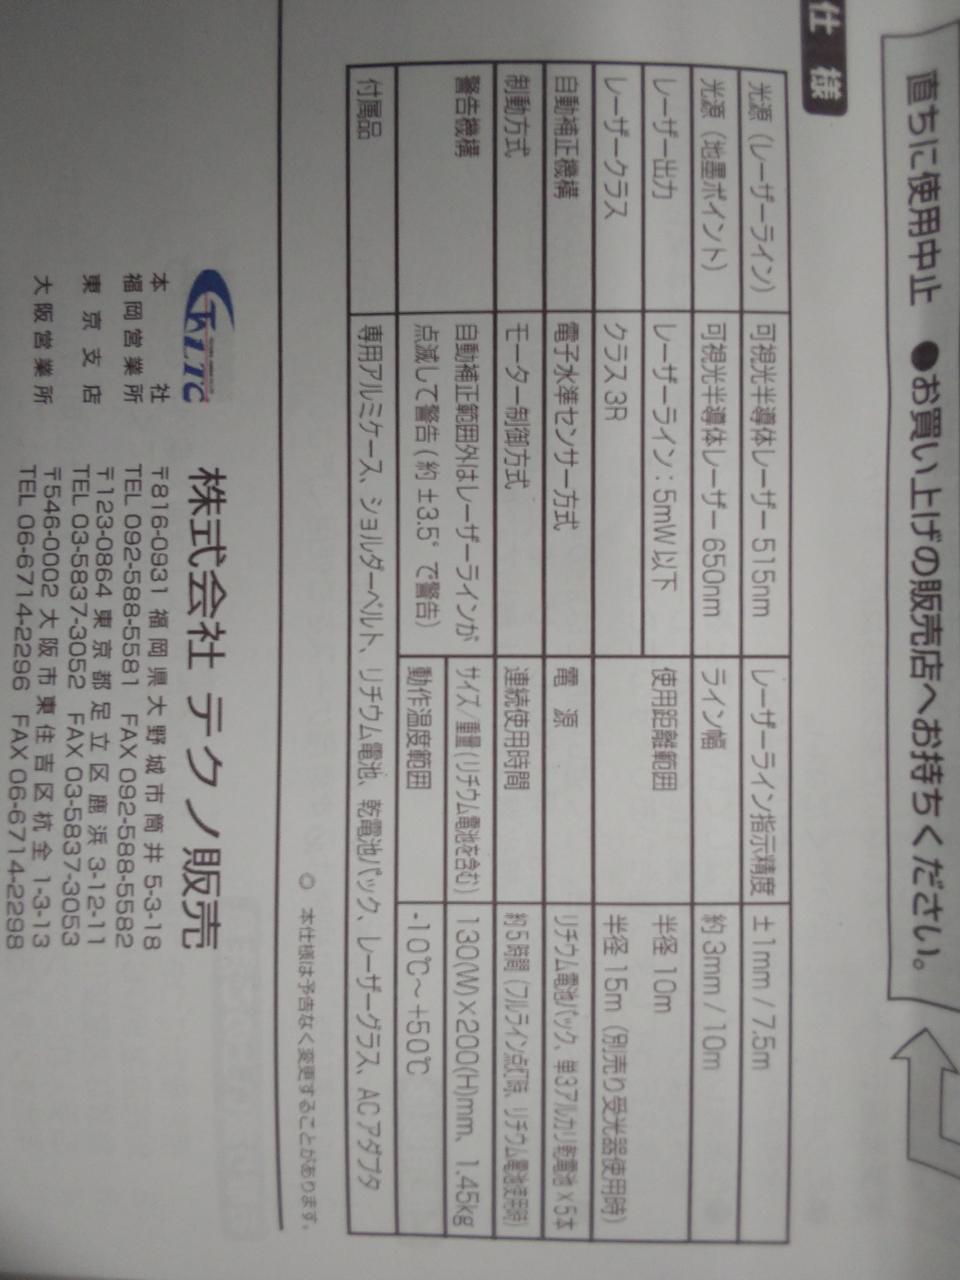 直ちに使用中止 ●お買い上げの販売店へお持ちください。
仕様
光源(レーザーライン) 可視光半導体レーザー 515nm レーザーライン指示精度 ±1mm / 7.5m
光源(地墨ポイント) 可視光半導体レーザー 650nm ライン幅 約 3mm / 10m
レーザー出力 レーザーライン:5mW以下 使用距離範囲 半径 10m
レーザークラス クラス 3R 半径 15m(別売り受光器使用時)
自動補正機構 電子水準センサー方式 電源 リチウム電池パック、単3アルカリ乾電池×5本
制動方式 モーター制御方式 連続使用時間 約5時間(フルライン点灯時、リチウム電池使用時)
警告機構 自動補正範囲外はレーザーラインが サイズ/重量(リチウム電池を含む) 130(W)×200(H)mm、1.45kg
点滅して警告(約±3.5°で警告) 動作温度範囲 -10℃~+50℃
付属品 専用アルミケース、ショルダーベルト、リチウム電池、乾電池パック、レーザーグラス、ACアダプタ
◎ 本仕様は予告なく変更することがあります。
株式会社 テクノ販売
本社 〒816-0931 福岡県大野城市筒井 5-3-18
福岡営業所 TEL 092-588-5581 FAX 092-588-5582
東京支店 〒123-0864 東京都足立区鹿浜 3-12-11
TEL 03-5837-3052 FAX 03-5837-3053
大阪営業所 〒546-0002 大阪市東住吉区杭全 1-3-13
TEL 06-6714-2296 FAX 06-6714-2298